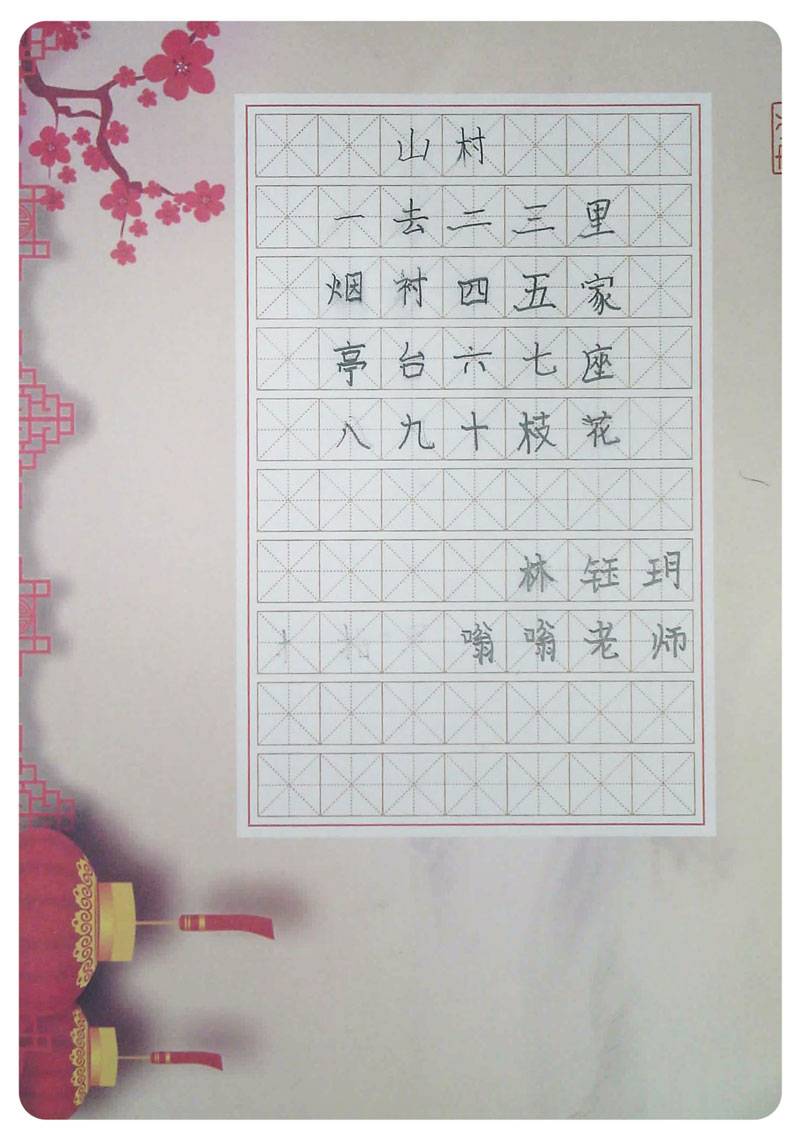 山村
一去二三里
烟衬四五家
亭台六七座
八九十枝花
林钰玥
嗡嗡老师